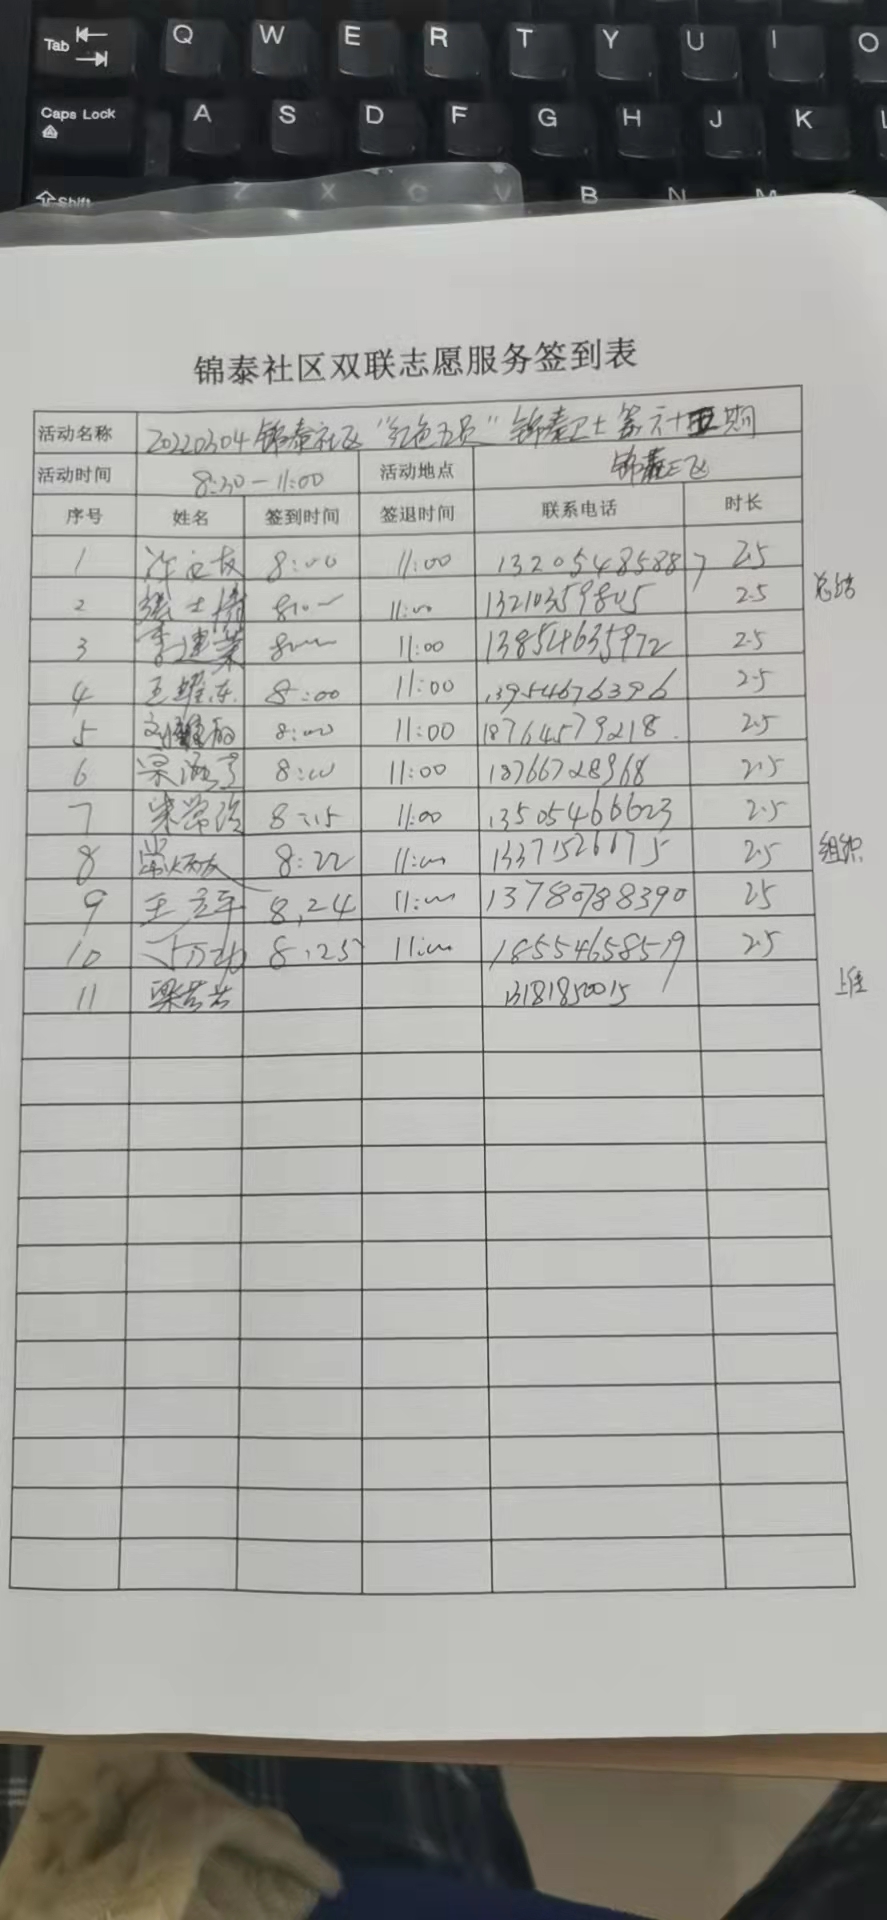 Tab
Q W E R T Y U I O
Caps Lock
A S D F G H J K L
Shift
X C V B N M
锦泰社区双联志愿服务签到表
活动名称 20220304锦泰社区“红色五员”锦泰卫士第六十五期
活动时间 8:30-11:00 活动地点 锦泰三区
序号 姓名 签到时间 签退时间 联系电话 时长
1 8:00 11:00 13205485887 2.5
2 11:00 13210359845 2.5 总结
3 李建荣 11:00 13854635972 2.5
4 王耀东 8:00 11:00 13954676396 2.5
5 8:00 11:00 18764579218 2.5
6 8:00 11:00 18766728968 2.5
7 8:15 11:00 13505466623 2.5
8 8:22 11:00 13371526675 2.5 组织
9 8:24 11:00 13780788390 2.5
10 8:25 11:00 18554658519 2.5
11 13181850015